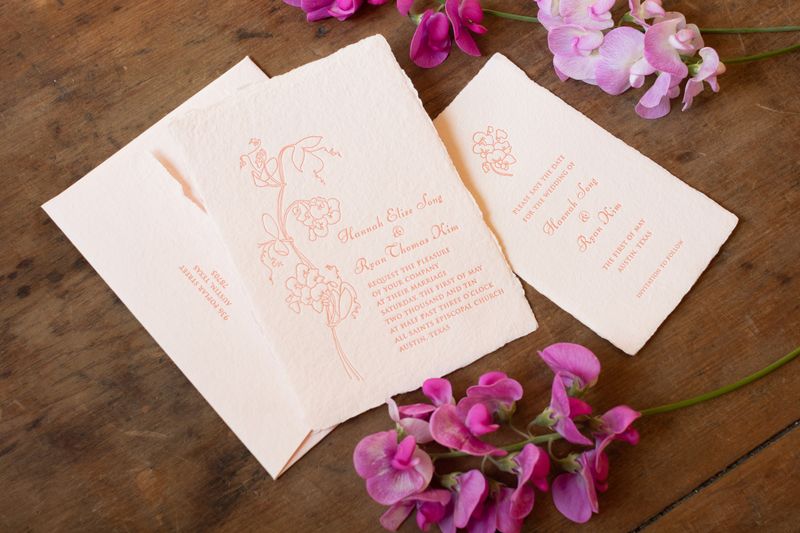 Hannah Elise Song
&
Ryan Thomas Kim
REQUEST THE PLEASURE
OF YOUR COMPANY
AT THEIR MARRIAGE
SATURDAY, THE FIRST OF MAY
TWO THOUSAND AND TEN
AT HALF PAST THREE O'CLOCK
ALL SAINTS EPISCOPAL CHURCH
AUSTIN, TEXAS
PLEASE SAVE THE DATE
FOR THE WEDDING OF
Hannah Song
&
Ryan Kim
THE FIRST OF MAY
AUSTIN, TEXAS
INVITATION TO FOLLOW
936 POPLAR STREET
AUSTIN, TEXAS
78705